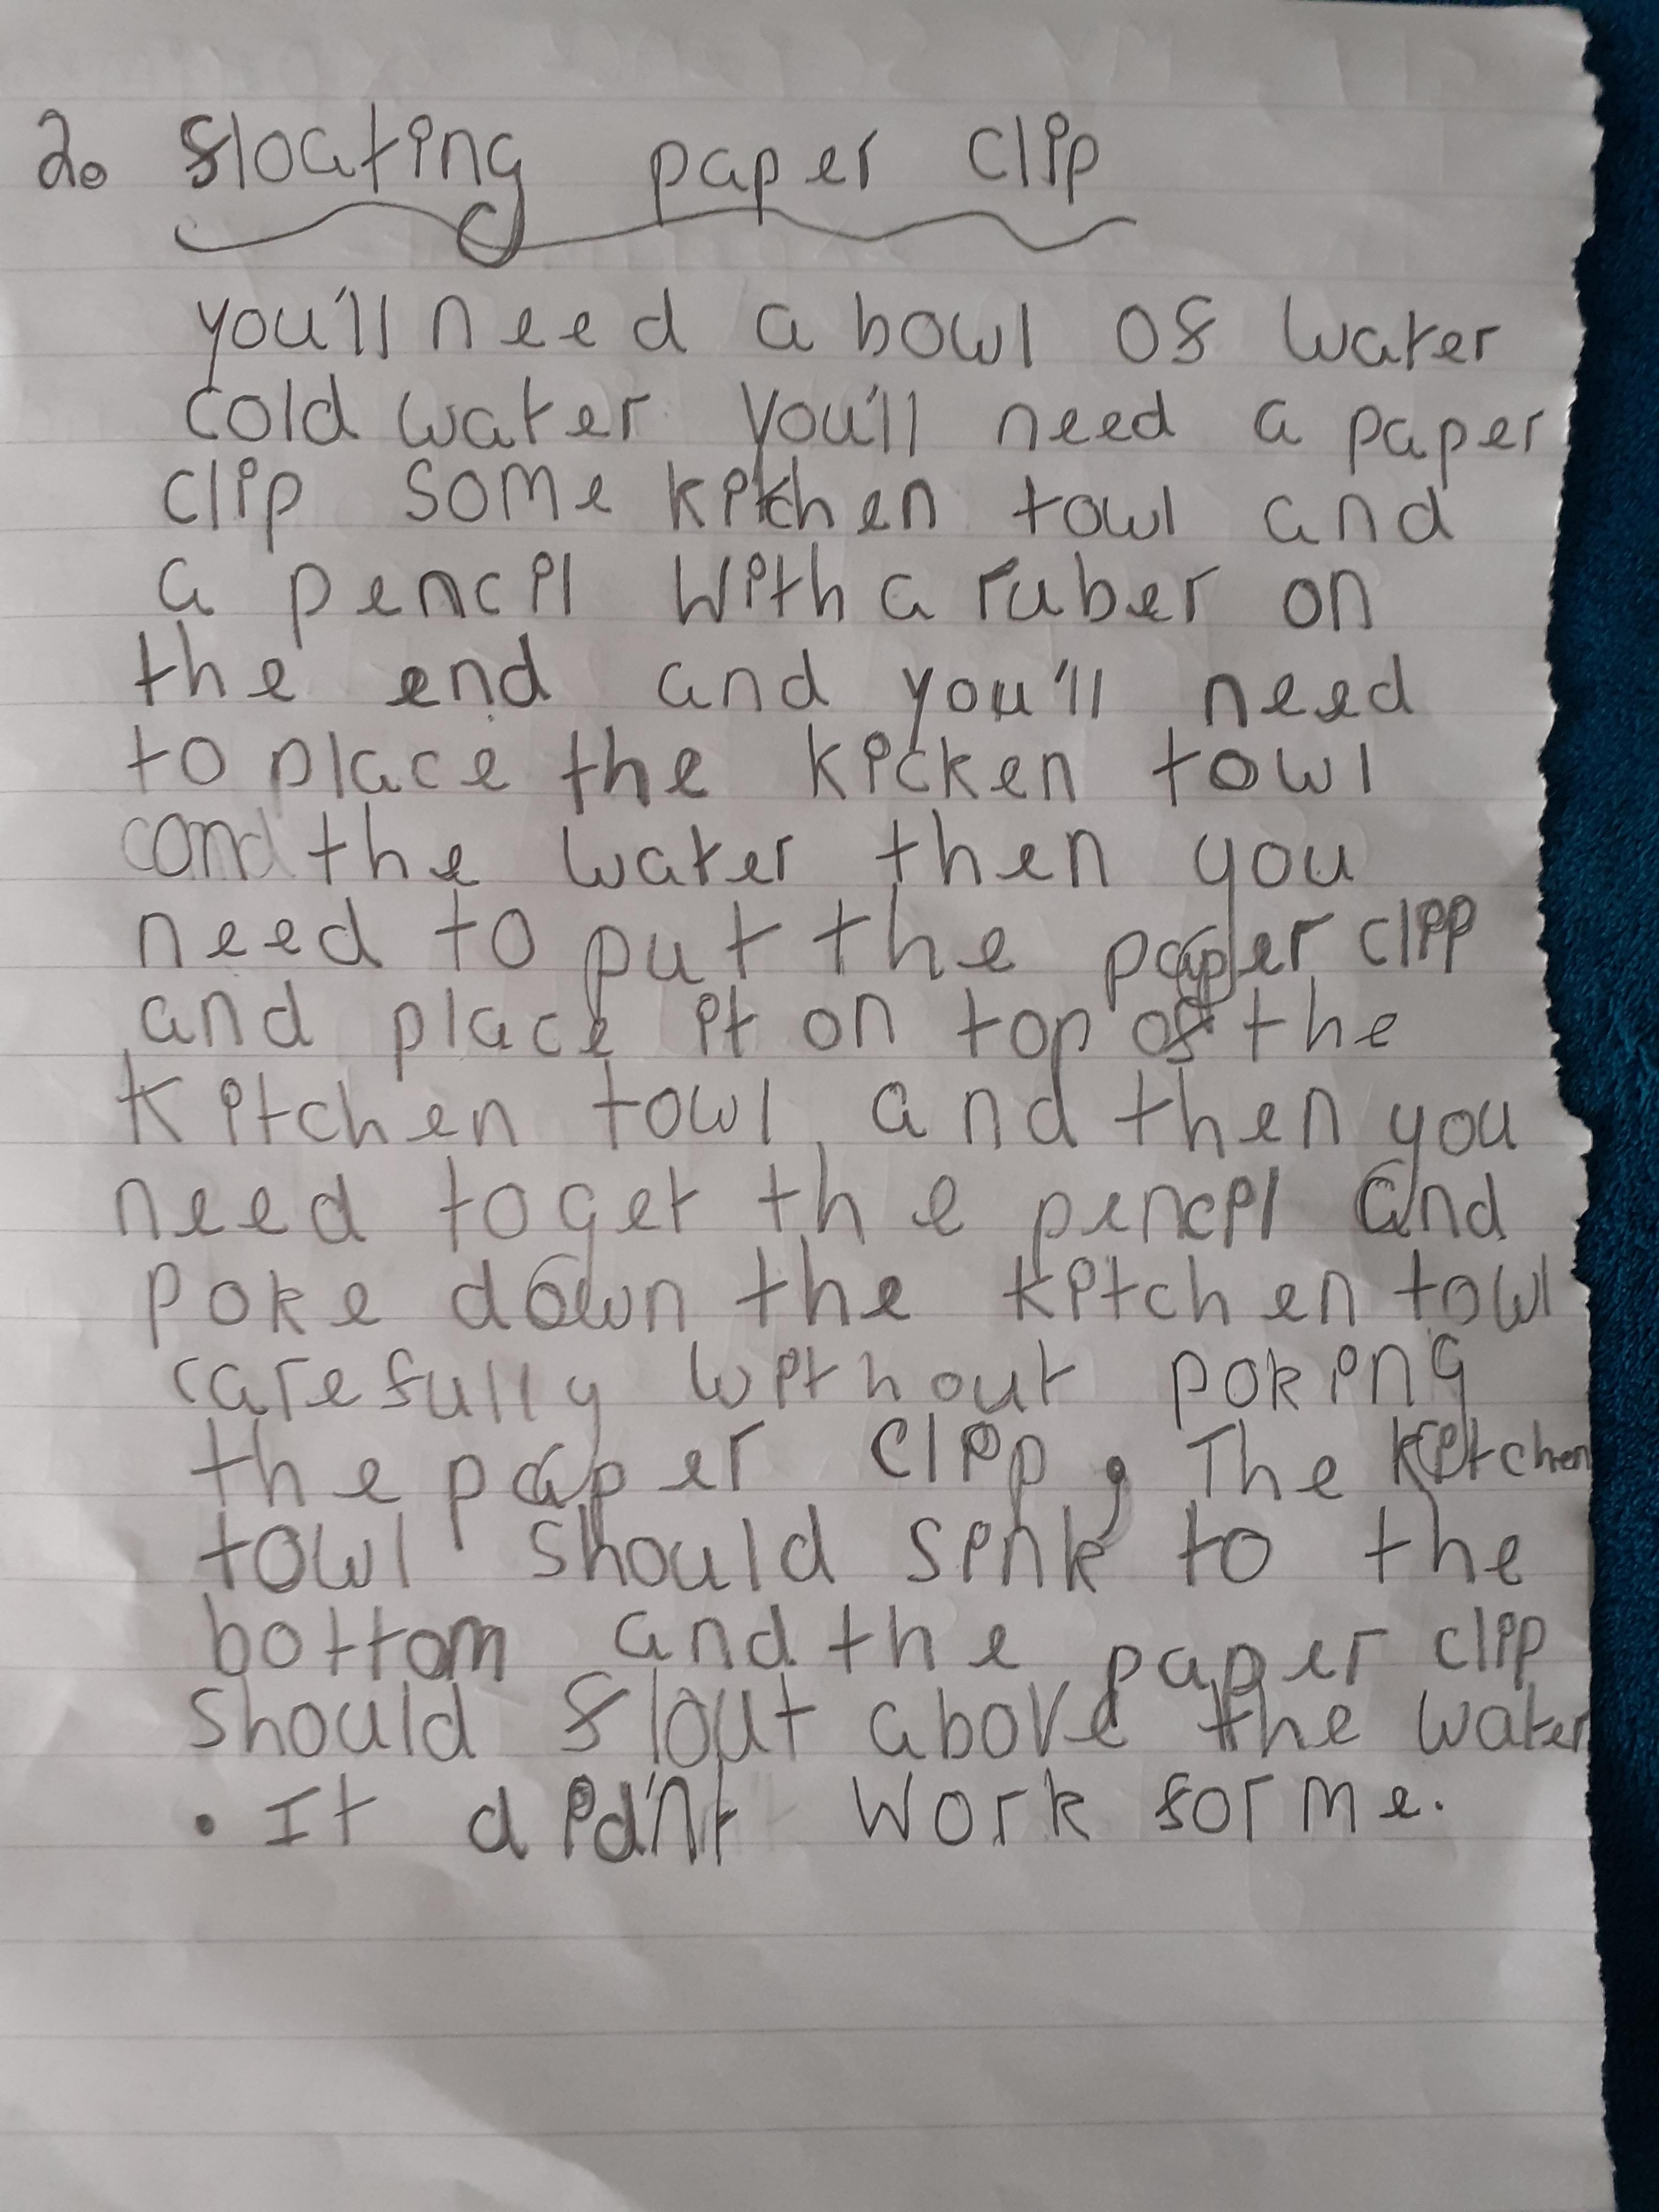 2. floating paper clip
you'll need a bowl of water
cold water you'll need a paper
clip some kitchen towl and
a pencil with a ruber on
the end and you'll need
to place the kicken towl
the water then you
need to put the paper clip
and place it on top of the
kitchen towl, and then you
need to get the pencil and
poke down the kitchen towl
carefully without poking
the paper clip, The kitchen
towl should sink to the
bottom and the paper clip
should flout above the water
. It didn't work for me.